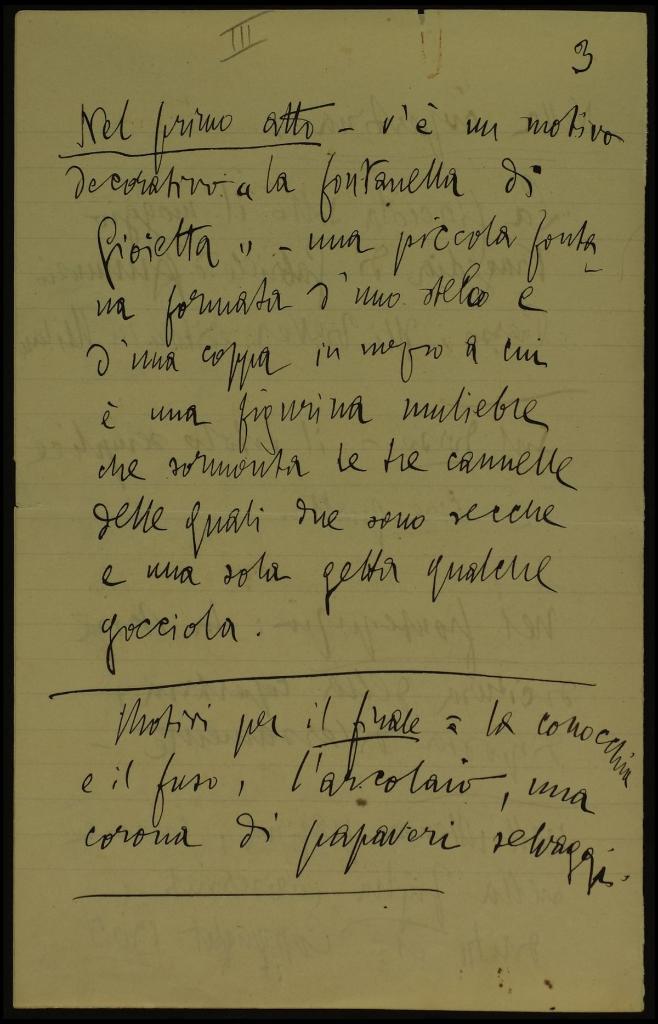 III
3
Nel primo atto – v'è un motivo
decorativo "la fontanella di
Gioietta" – una piccola fonta
na formata d'uno stelo e
d'una coppa in mezzo a cui
è una figurina muliebre
che sormonta le tre cannelle
delle quali due sono secche
e una sola getta qualche
gocciola.
Motivi per il finale = la conocchia
e il fuso, l'arcolaio, una
corona di papaveri selvaggi.